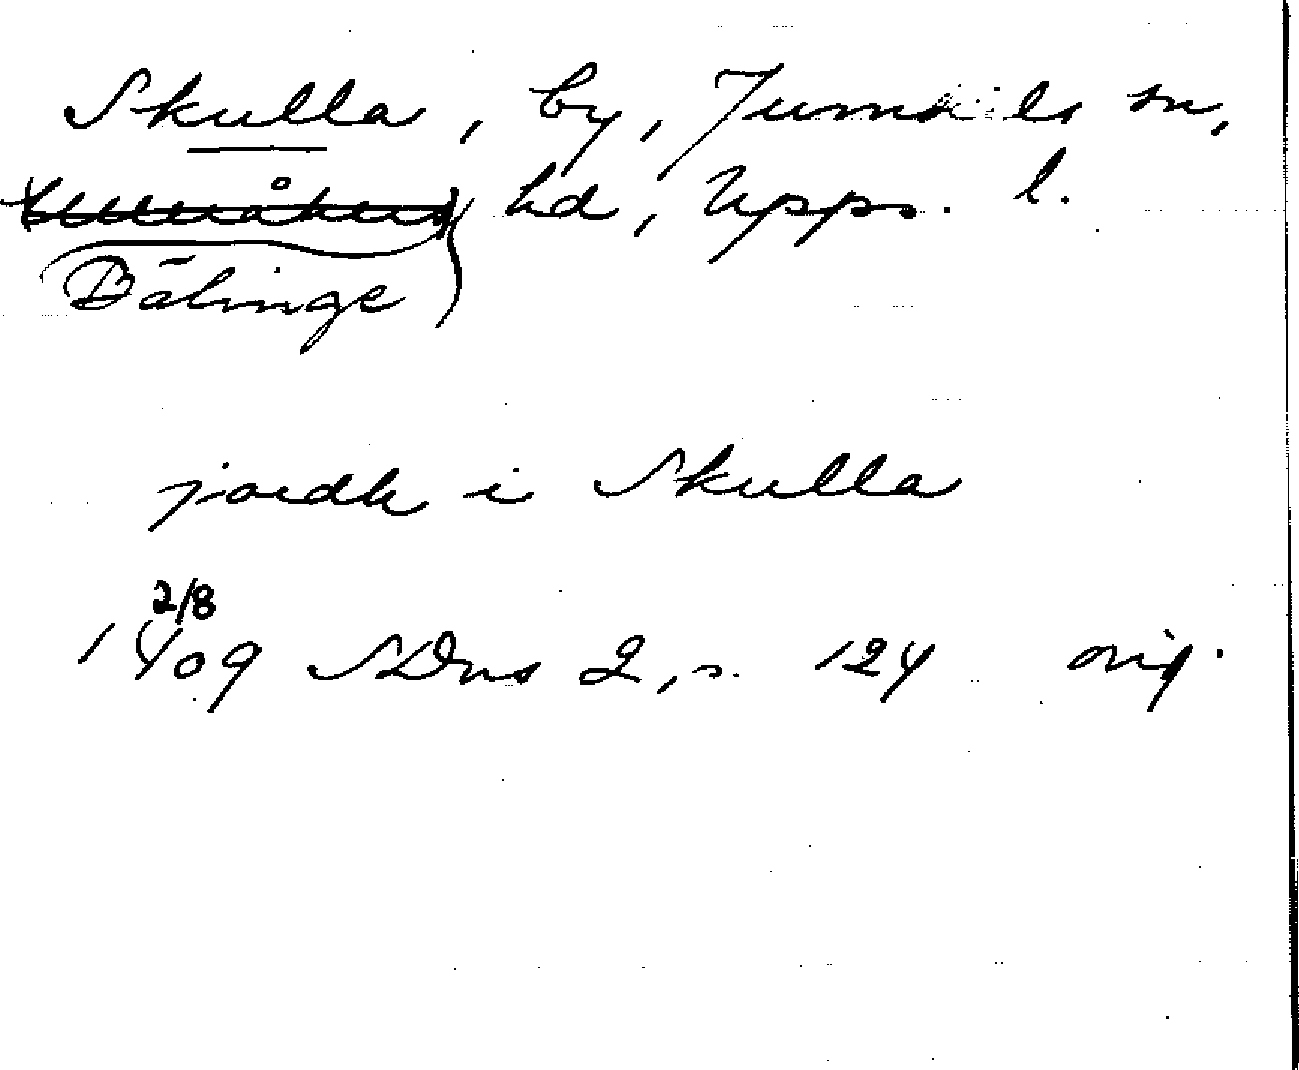 Skulla, by, Jumkils sn,
Ulleråkers hd, Upps. l.
Bälinge
jordh i Skulla
2/8
1409 SDns 2, s. 124 orig.